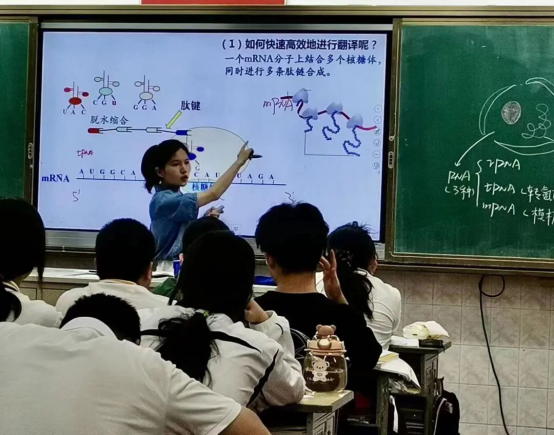 (1)如何快速高效地进行翻译呢?
一个mRNA分子上结合多个核糖体,
同时进行多条肽链合成。
UAC
CGG
GGA
肽键
脱水缩合
mRNA
tRNA
mRNA
AUGGCA
UAGA
核糖
5'
3'
RNA
(3种)
rRNA
tRNA
mRNA